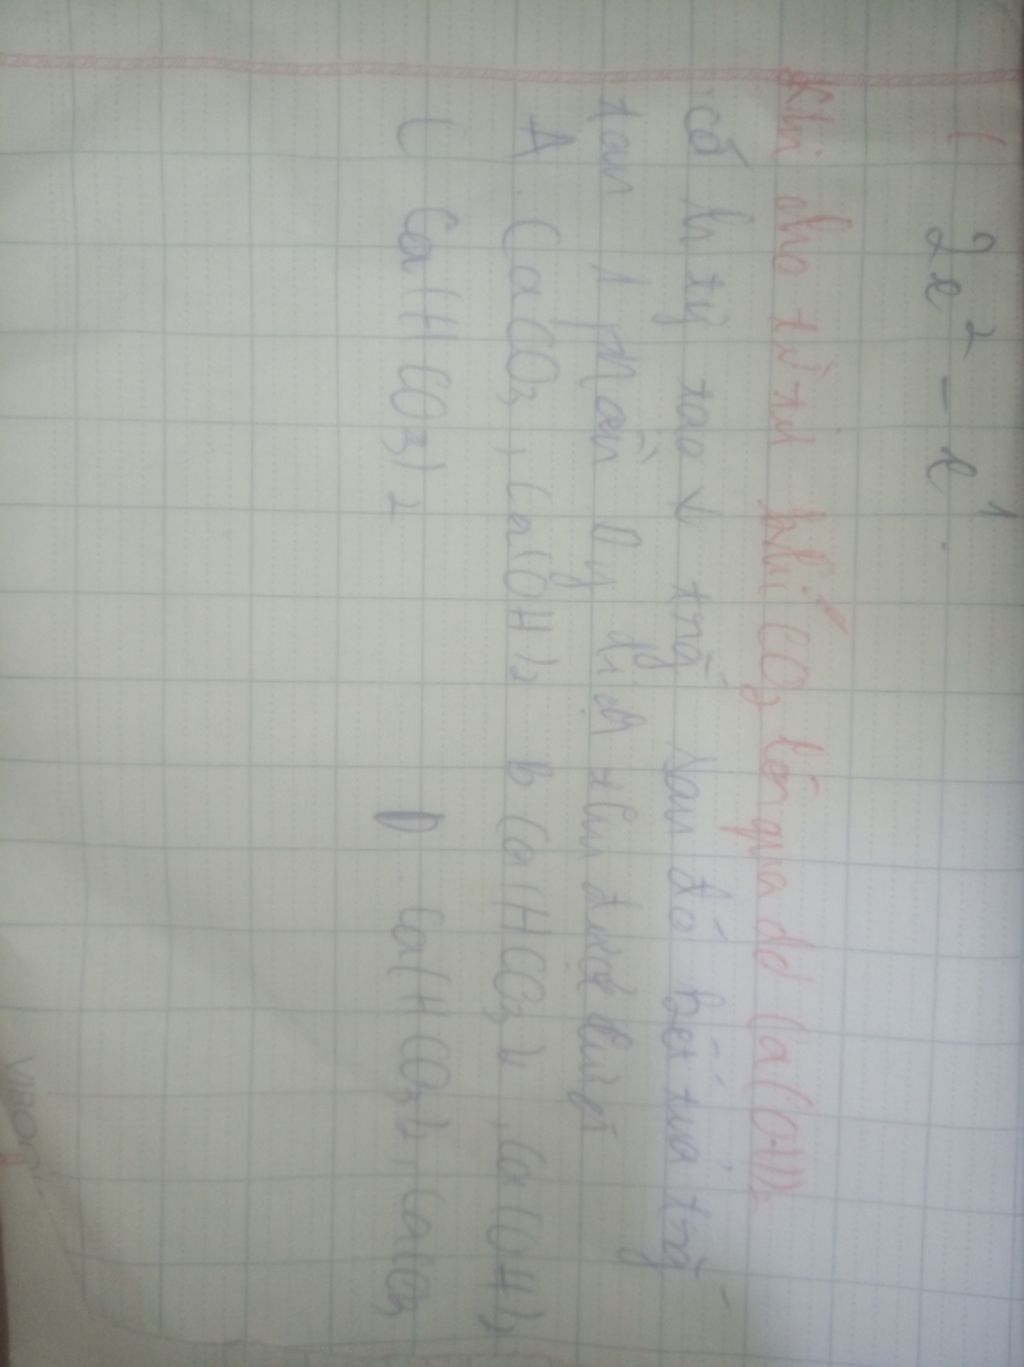 2x² - x¹.
Khi cho từ từ khí CO₂ lội qua dd Ca(OH)₂
có h tg tạo ↓ trắg sau đó kết tủa trắg
tan 1 phần thu được
A. CaCO₃, Ca(OH)₂ B Ca(HCO₃)₂, Ca(OH)₂
C Ca(HCO₃)₂ D. Ca(HCO₃)₂, CaCO₃